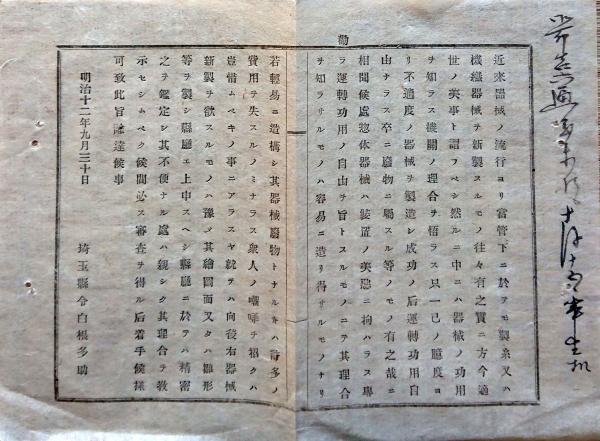 勸
近來器械ノ流行ヨリ當管下ニ於テモ製糸又ハ
機織器械ヲ新製スルモノ往々有之實ニ方今適
世ノ美事ト謂フベシ然ルニ中ニハ器械ノ功用
ヲ知ラス機關ノ理合ヲ悟ラス只一己ノ臆度ヨ
リ不適度ノ器械ヲ製造シ成功ノ后運轉功用自
由ナラス卒ニ廢物ニ屬スル等ノモノ有之哉ニ
相聞候處惣体器械ハ裝置ノ美麁ニ拘ハラス專
ラ運轉功用ノ自由ヲ旨トスルモノニテ其理合
ヲ知ラサルモノハ容易ニ造リ得サルモノナリ
若輕易ニ造構シ其器械廢物トナルキハ許多ノ
費用ヲ失スルノミナラス衆人ノ嘲嗤ヲ招クハ
豈惜ムベキノ事ニアラスヤ就テハ向後右器械
新製ヲ欲スルモノハ豫メ其繪圖面又タハ雛形
等ヲ製シ縣廳エ上申スヘシ縣廳ニ於テハ精密
之ヲ鑑定シ其不便ナル處ハ親シク其理合ヲ敎
示セシムベク候間必ス審査ヲ得ル后着手候樣
可致此旨諭達候事
明治十二年九月三十日
埼玉縣令白根多助